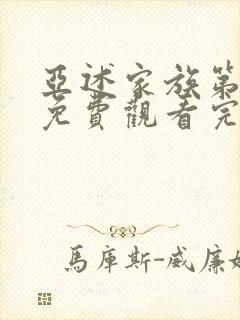 亞述家族第
免費觀看完
馬庫斯-威廉